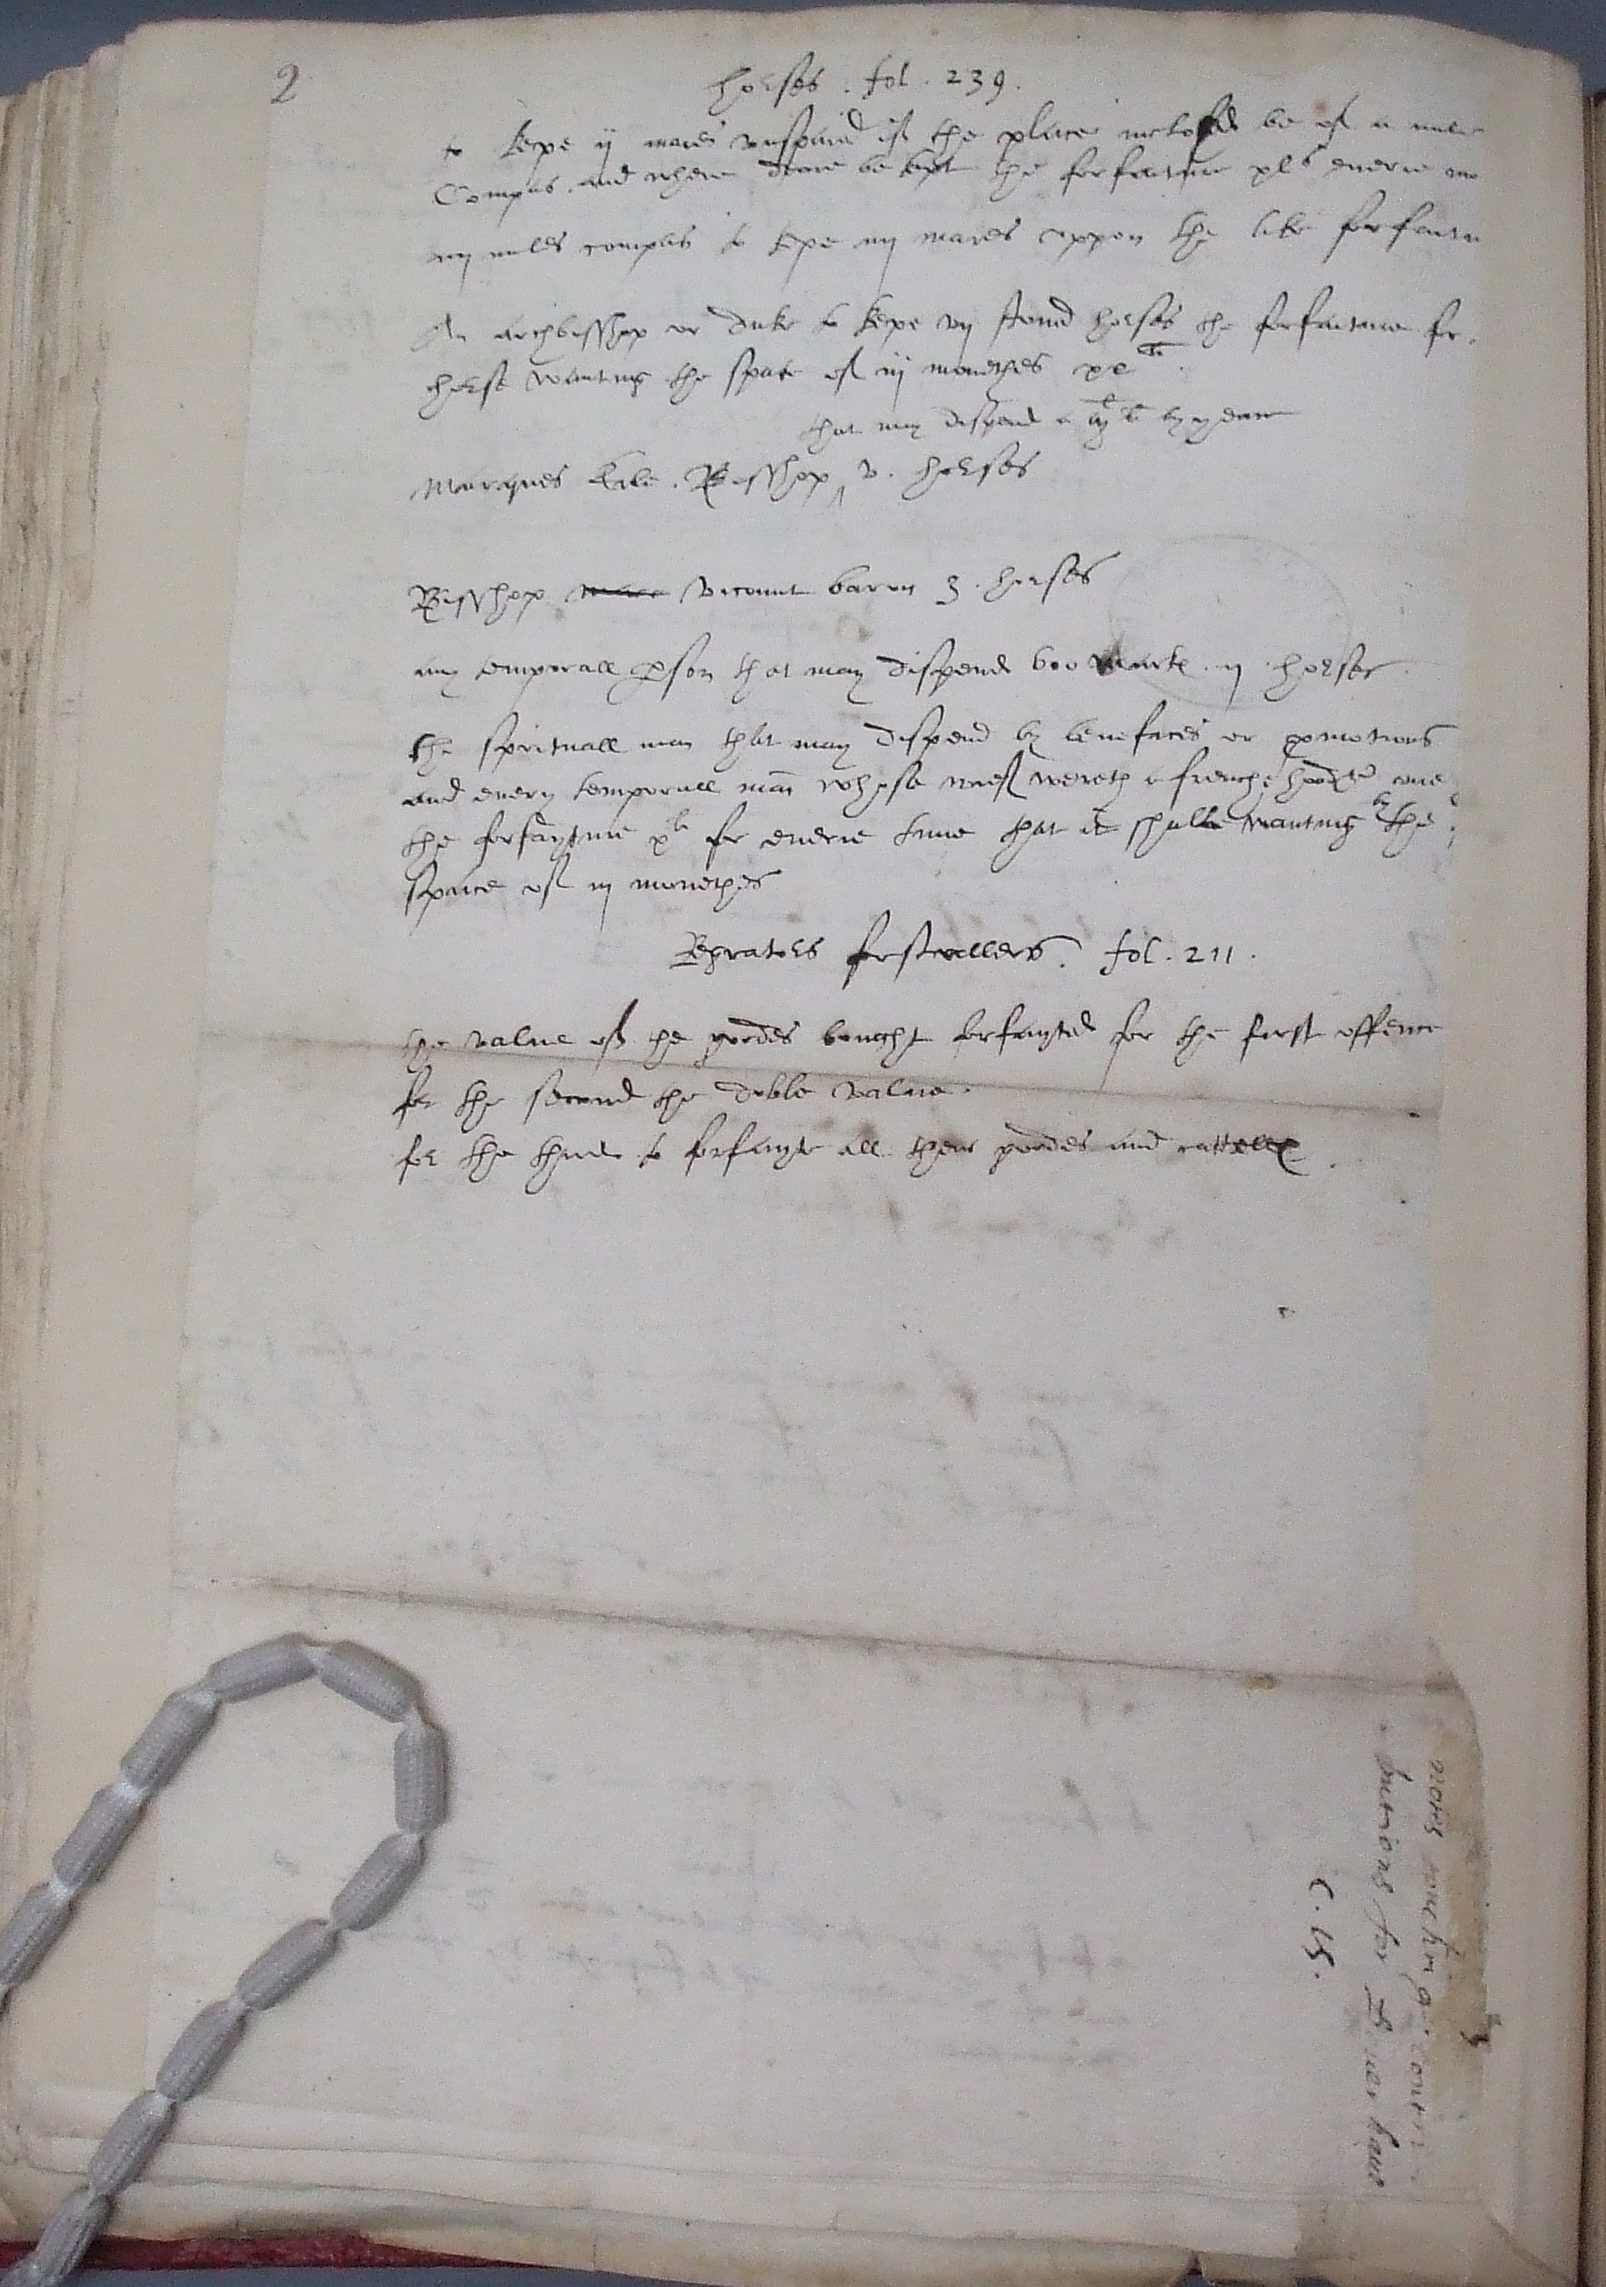 2
horses . fol . 239 .
to kepe ij mares unspaid if the place inclosed be of a mile
Compas and where deare be kept the forfaiture xls everie mo
iiij miles compas to kepe iiij mares uppon the like forfaitu
An archbisshop or duke to kepe vij stoned horses the forfaiture for
horse wanting the space of iij monethes xli
that may dispend a li by yeare
Marques Erle . Bisshop ^ v . horses
Bisshop vicount baron 3 . horses
any temporall pson that may dispend voo marke ij horses
the sprituall man that may dispend by benefaces or pmotions
and every temporall man whose wief wereth a frenche hoode one
the forfayture xli for everie time that it shalbe wanting by the
space of iij monethes
Regrators forstallers . fol . 211 .
the value of the goodes bought forfayted for the first offence
for the second the doble value .
for the third to forfayte all their goodes and cattelle .
butions for
C . 15 .